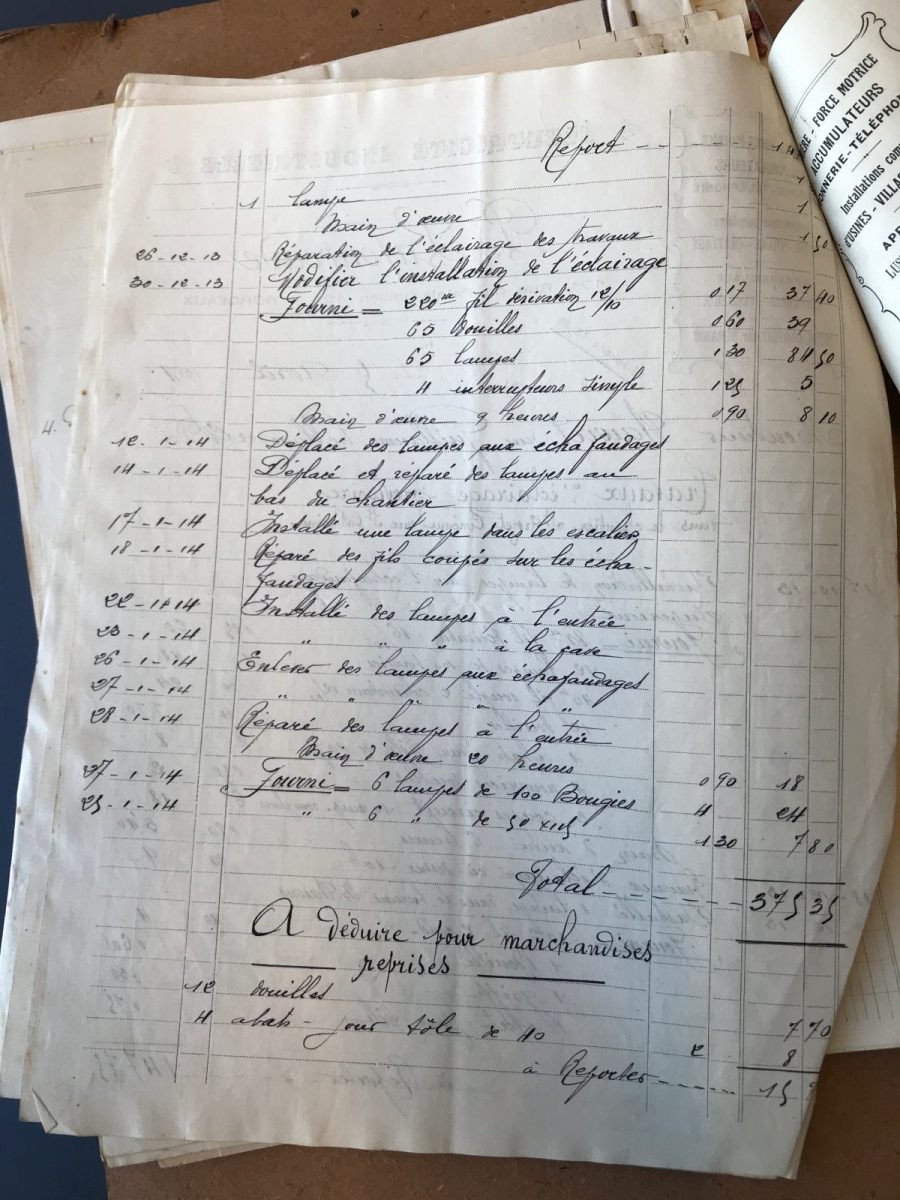 Report
1 lampe 1
Main d'œuvre 1 50
26-12-13 Réparation de l'éclairage des travaux
30-12-13 Modifier l'installation de l'éclairage
Fourni = 220 m fil dérivation 12/10 0 17 37 40
65 douilles 0 60 39
65 lampes 1 30 84 50
4 interrupteurs simple 1 25 5
Main d'œuvre 9 heures 0 90 8 10
12-1-14 Déplacé des lampes aux échafaudages
14-1-14 Déplacé et réparé des lampes au
bas du chantier
17-1-14 Installé une lampe dans les escaliers
18-1-14 Réparé des fils coupés sur les écha-
faudages
22-1-14 Installé des lampes à l'entrée
23-1-14 " " " à la cave
26-1-14 Enlever des lampes aux échafaudages
27-1-14 " " " "
28-1-14 Réparé des lampes à l'entrée
Main d'œuvre 20 heures 0 90 18
27-1-14 Fourni = 6 lampes de 100 Bougies 4 24
25-1-14 " 6 " de 50 1 30 7 80
Total 375 35
A déduire pour marchandises
reprises
12 douilles 7 70
4 abat-jour tôle de 40 2 8
à Reporter 15
FORCE MOTRICE
ACCUMULATEURS
TÉLÉPHON
Installations com
D'USINES - VILLA